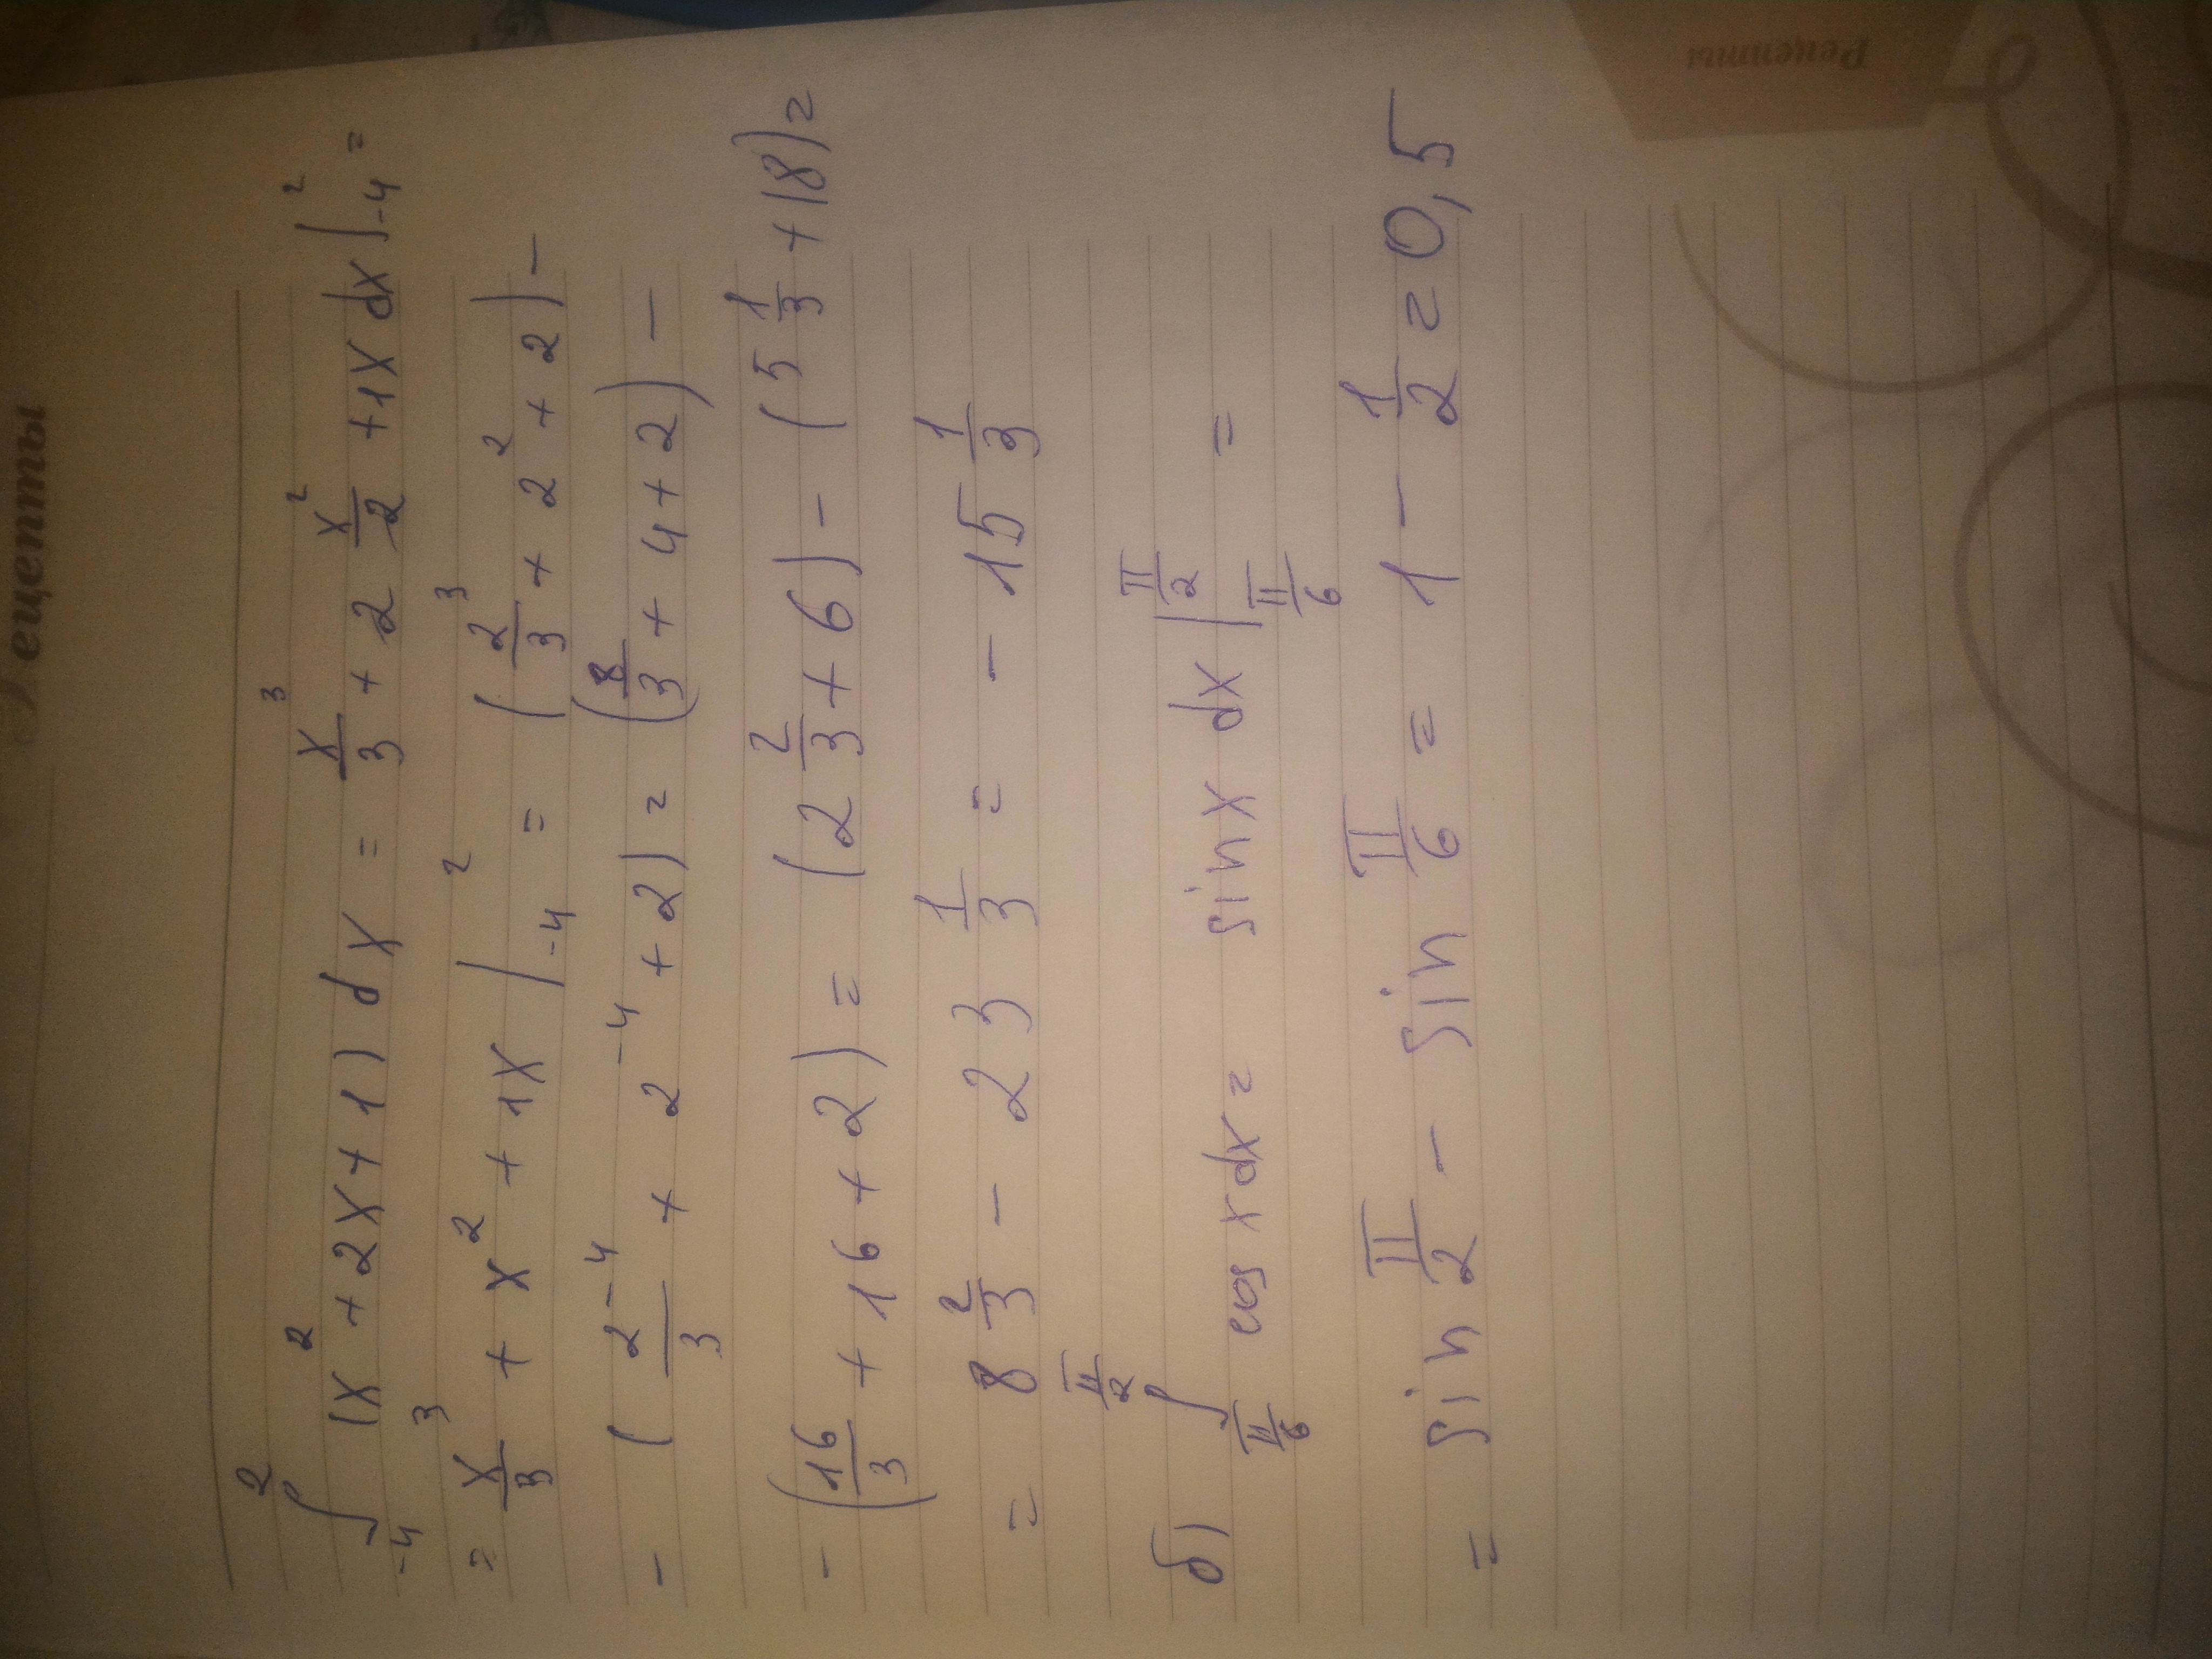 Рецепты
∫_{-4}^{2} (x² + 2x + 1) dx = x³/3 + 2 x²/2 + 1x dx |_{-4}^{2} =
= x³/3 + x² + 1x |_{-4}^{2} = (2³/3 + 2² + 2) -
- (2⁻⁴/3 + 2⁻⁴ + 2) = (8/3 + 4 + 2) -
- (16/3 + 16 + 2) = (2 2/3 + 6) - (5 1/3 + 18) =
= 8 2/3 - 23 1/3 = - 15 1/3
б) ∫_{π/6}^{π/2} cos x dx = sin x dx |_{π/6}^{π/2} =
= sin π/2 - sin π/6 = 1 - 1/2 = 0,5
Рецепты